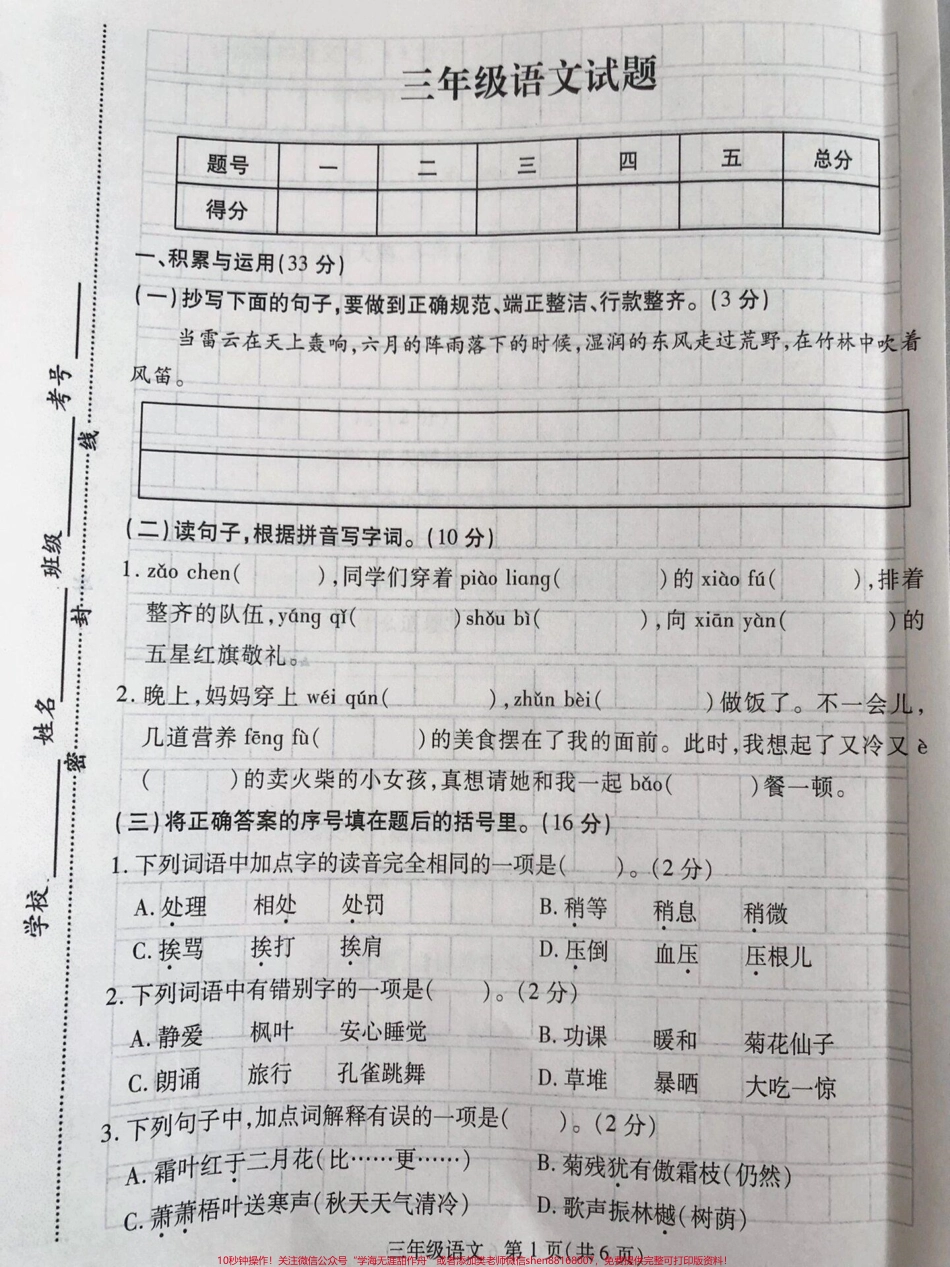 三年级语文试题
题号 一 二 三 四 五 总分
得分
一、积累与运用(33 分)
(一)抄写下面的句子,要做到正确规范、端正整洁、行款整齐。(3 分)
当雷云在天上轰响,六月的阵雨落下的时候,湿润的东风走过荒野,在竹林中吹着
风笛。
(二)读句子,根据拼音写字词。(10 分)
1. zǎo chen( ),同学们穿着 piào liang( )的 xiào fú( ),排着
整齐的队伍,yáng qǐ( )shǒu bì( ),向 xiān yàn( )的
五星红旗敬礼。
2. 晚上,妈妈穿上 wéi qún( ),zhǔn bèi( )做饭了。不一会儿,
几道营养 fēng fù( )的美食摆在了我的面前。此时,我想起了又冷又 è
( )的卖火柴的小女孩,真想请她和我一起 bǎo( )餐一顿。
(三)将正确答案的序号填在题后的括号里。(16 分)
1. 下列词语中加点字的读音完全相同的一项是( )。(2 分)
A. 处理 相处 处罚 B. 稍等 稍息 稍微
C. 挨骂 挨打 挨肩 D. 压倒 血压 压根儿
2. 下列词语中有错别字的一项是( )。(2 分)
A. 静爱 枫叶 安心睡觉 B. 功课 暖和 菊花仙子
C. 朗诵 旅行 孔雀跳舞 D. 草堆 暴晒 大吃一惊
3. 下列句子中,加点词解释有误的一项是( )。(2 分)
A. 霜叶红于二月花(比……更……) B. 菊残犹有傲霜枝(仍然)
C. 萧萧梧叶送寒声(秋天天气清冷) D. 歌声振林樾(树荫)
三年级语文 第 1 页(共 6 页)
10秒钟操作!关注微信公众号“学海无涯甜作舟”或者添加樊老师微信shen88168007,免费提供完整可打印版资料!
学校 姓名 班级 考号
密 封 线